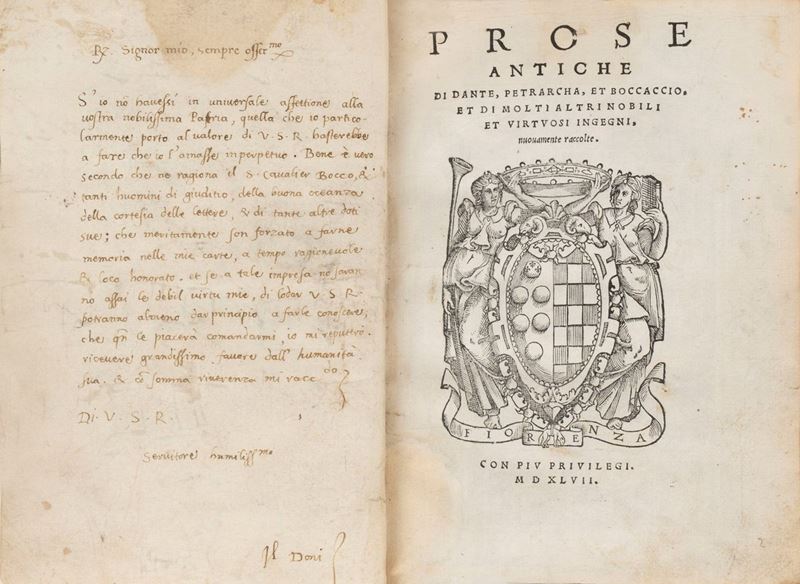 R. Signor mio, sempre osser.mo
S'io nō havessi in universale affettione alla
vostra nobilissima Patria, quella che io partico-
larmente porto al valore di V.S.R. basterebbe
a fare che io l'amasse inperpetuo. Bene è vero
secondo che ne ragiona il S. Cavalier Bocco, &
tanti huomini di giuditio, della buona creanza
della cortesia delle lettere, & di tante altre doti
sue; che meritamente son forzato a farne
memoria nelle mie carte, a tempo ragionevole
& loco honorato. et se a tale impresa nō saran
no assai le debil virtu mie, di lodar V.S.R.
potranno almeno dar principio a farle conoscere,
che qn̄ le piacerà comandarmi, io mi reputerò.
ricevere grandissimo favore dall' humanità
sua. & cō somma riverenza mi racc.do
Di. V. S. R.
Servitore humiliss.mo
Il Doni
PROSE
ANTICHE
DI DANTE, PETRARCHA, ET BOCCACCIO,
ET DI MOLTI ALTRI NOBILI
ET VIRTVOSI INGEGNI,
nuouamente raccolte.
FIORENZA
CON PIV PRIVILEGI.
M D XLVII.
2